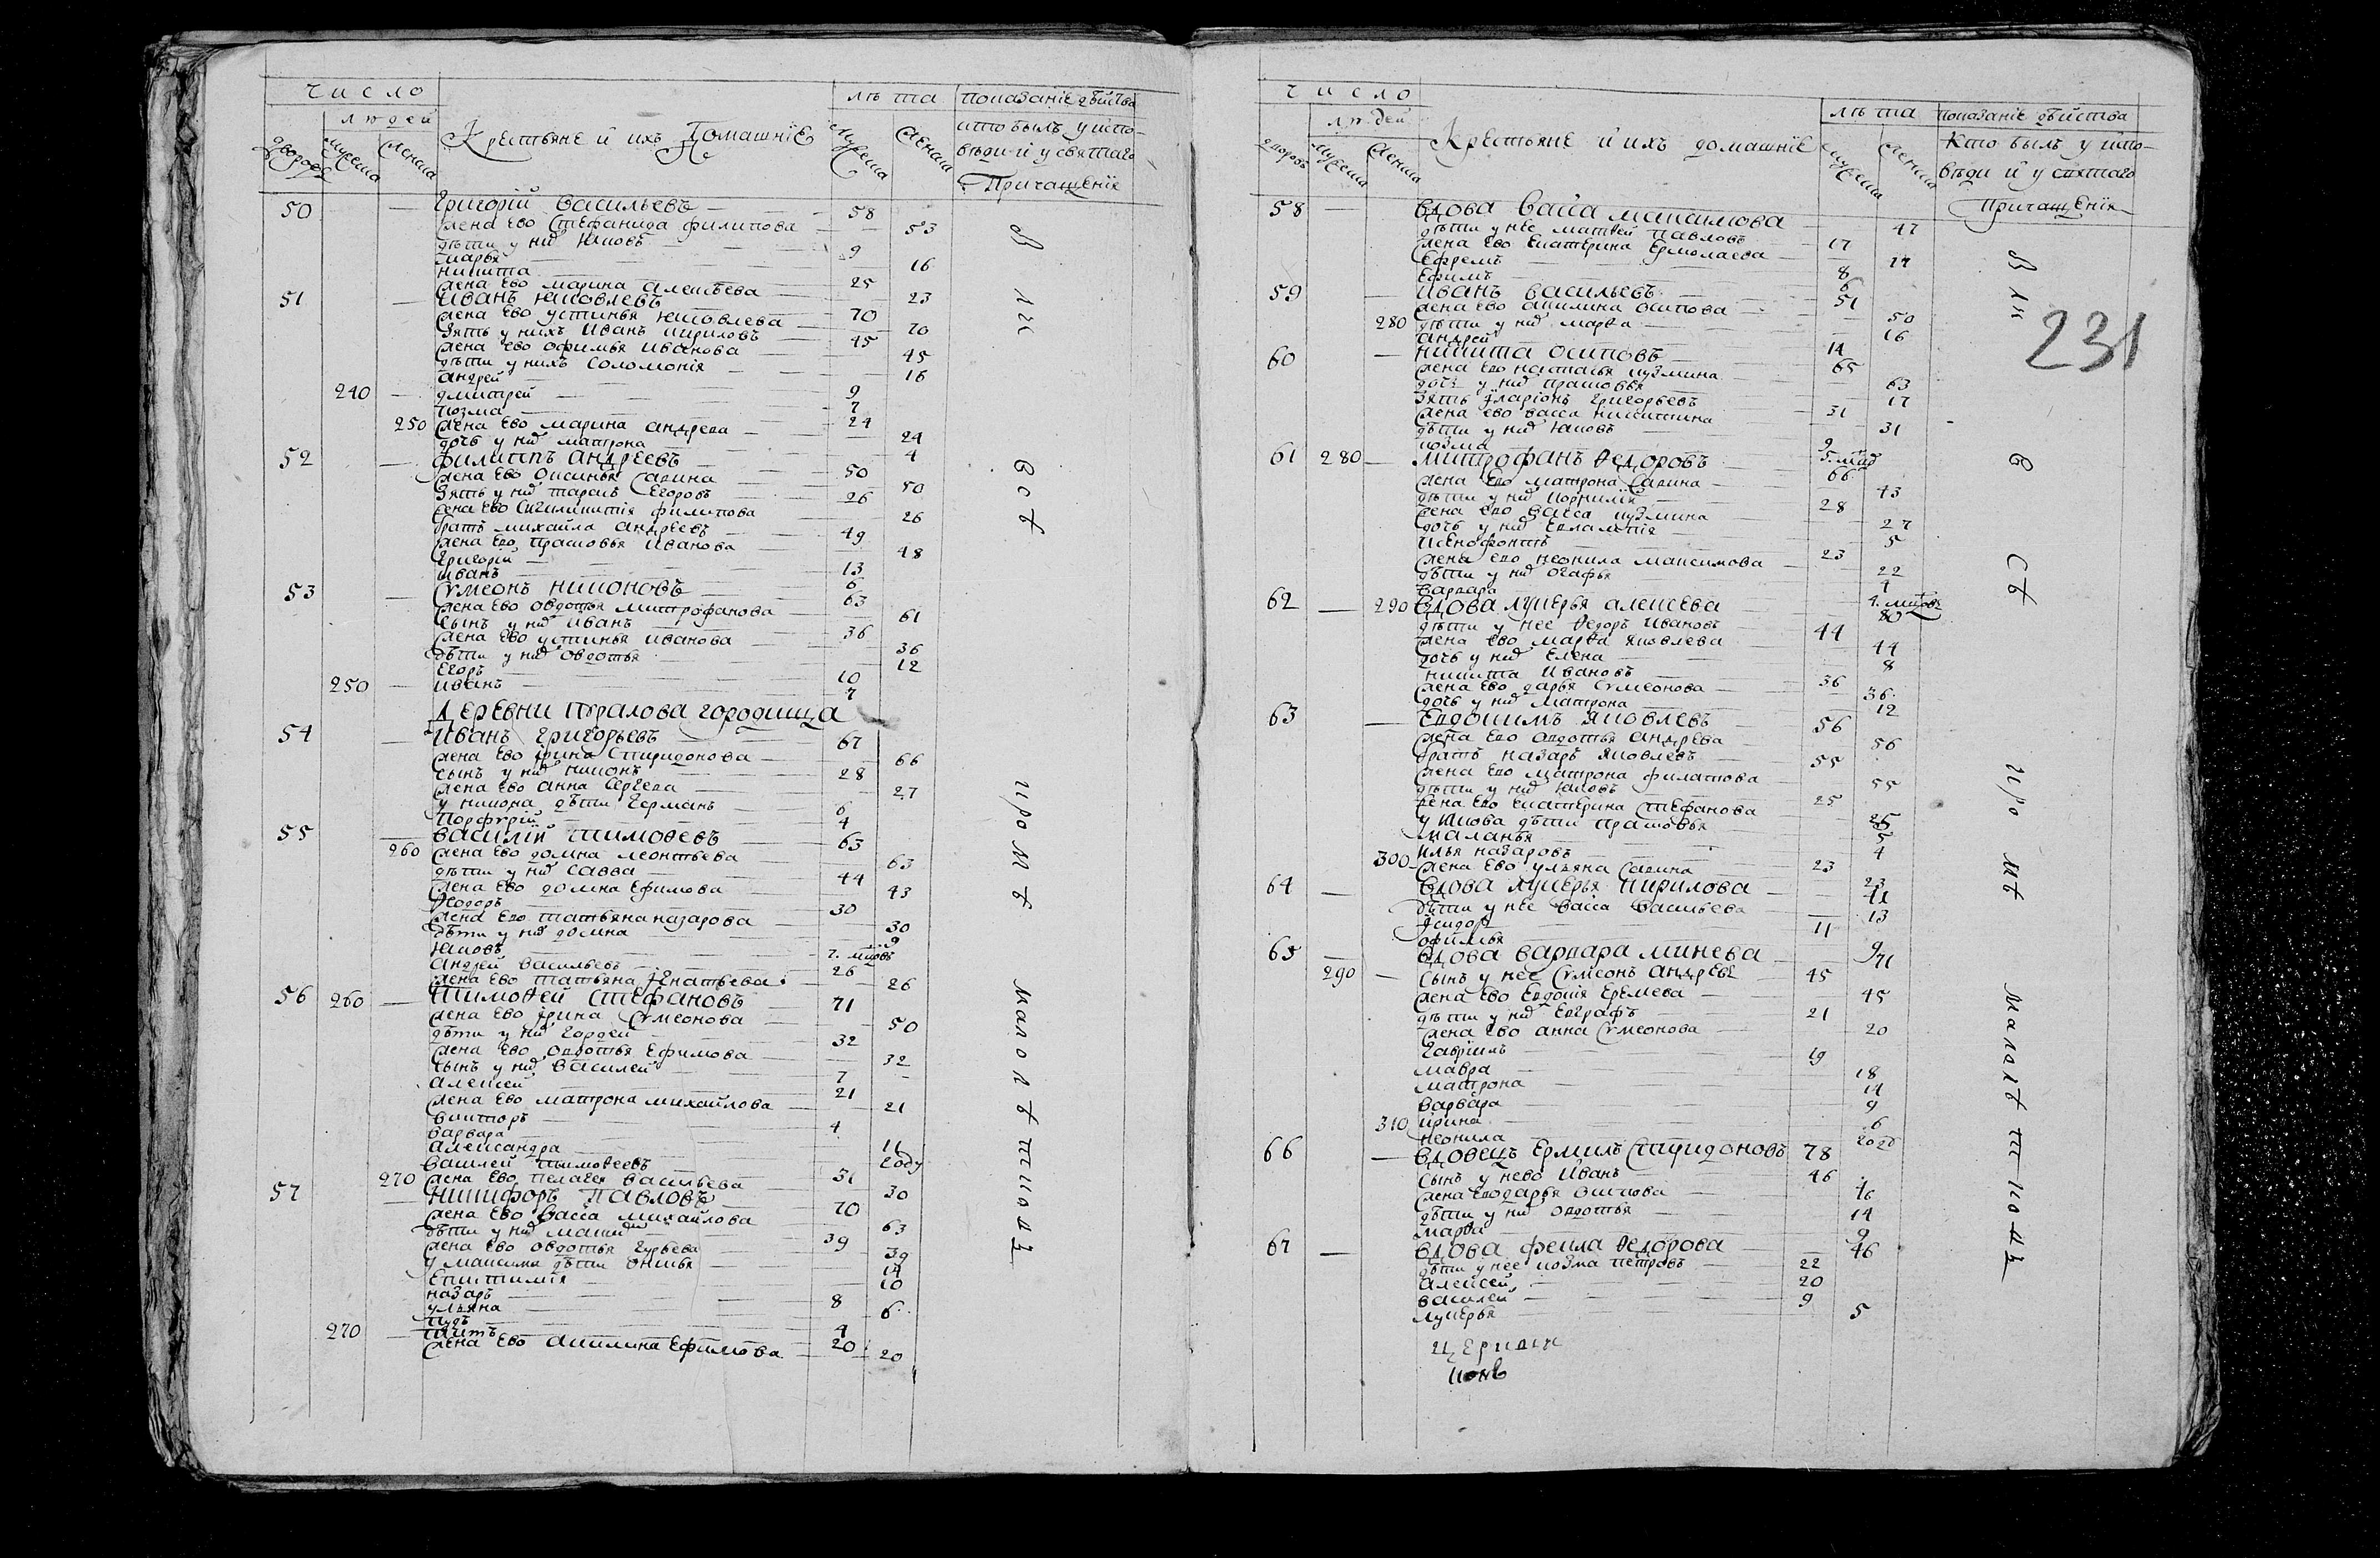 число
людей
лѣта показанiе дѣйства
дворовъ мужеска женска Крестьяне и ихъ Домашнiе мужеска женска кто былъ у испо-
вѣди и у святаго
Причащенiя
50 Григорiй Васильевъ 58
жена ево Стефанида Филипова 53
дѣти у них Яковъ 9
Марья 16
Никита 25
жена ево Марина Алексѣева 23
51 Иванъ Яковлевъ 70
жена ево Устинья Яковлева 70
Зять у нихъ Иванъ Кириловъ 45
жена ево Офимья Иванова 45
дѣти у нихъ Соломонiя 16
Андрей 9
240 Дмитрей 7
Козма 24
250 жена ево Марина Андрева 24
дочь у них Матрона 4
52 Филиппъ Андреевъ 50
жена ево Оксинья Савина 50
Зять у них Тарасъ Егоровъ 26
жена ево Филипова 26
братъ Михайла Андреевъ 49
жена ево Прасковья Иванова 48
Григорiй 13
Иванъ 6
53 Сѵмеонъ Никоновъ 63
жена ево Овдотья Митрофанова 61
сынъ у них Иванъ 36
жена ево Устинья Иванова 36
дѣти у них Овдотья 12
Егоръ 10
250 Иванъ 7
Деревни Туралова городища
54 Иванъ Григорьевъ 67
жена ево Iрина Спиридонова 66
сынъ у них Никонъ 28
жена ево Анна Сергева 27
у Никона дѣти Германъ 6
Порфѵрiй 4
55 Василiй Тимоѳевъ 63
260 жена ево Домна Леонтьева 63
дѣти у них Савва 44
жена ево Домна Ефимова 43
Ѳеодоръ 30
жена ево Татьяна Назарова 30
дѣти у них Домна 9
Яковъ 7. мцовъ
Андрей Васильевъ 26
жена ево Татьяна Iгнатьева 26
56 260 Тимоѳей Стефановъ 71
жена ево Iрина Сѵмеонова 50
дѣти у них Гордей 32
жена ево Овдотья Ефимова 32
сынъ у них Василей 7
Алексей 21
жена ево Матрона Михайлова 21
Викторъ 4
Варвара 11
Александра году
Василей Тимоѳеевъ 31
270 жена ево Пелагея Васильева 30
57 Никифоръ Павловъ 70
жена ево Васса Михайлова 63
дѣти у них Максим 39
жена ево Овдотья Гурьева 39
у Максима дѣти 14
Епистимiя 10
Назаръ 8
Ульяна 6
Пудъ 4
270 Титъ 20
жена ево Акилина Ефимова 20
Вси
Всѣ
кромѣ
малолѣтнодъ
число
людей
лѣта показанiе дѣйства
дворовъ мужеска женска Крестьяне и ихъ домашнiе мужеска женска Кто былъ у испо-
вѣди и у святаго
Причащенiя
231
58 Вдова Васа Максимова 47
дѣти у нее Матѳей Павловъ 17
жена ево Екатерина Ермолаева 17
Ефремъ 8
Ефимъ 6
59 Иванъ Васильевъ 51
жена ево Акилина Осипова 50
280 дѣти у них Марѳа 16
Андрей 14
60 Никита Осиповъ 65
жена ево Наталья Кузмина 63
дочь у них Прасковья 17
Зять Iларiонъ Григорьевъ 31
жена ево Васса Никитина 31
дѣти у них Яковъ 9
Козма 5. мцо
61 280 Митрофанъ Ѳедоровъ 66
жена ево Матрона Савина 43
дѣти у них Корнилiй 28
жена ево Васса Кузмина 27
дочь у них Евлампiя 5
Ксенофонтъ 23
жена ево Неонила Максимова 22
дѣти у них Огафья 4
Варвара 4. мцовъ
62 290 Вдова Лукерья Алексева 80
дѣти у нее Ѳедоръ Ивановъ 44
жена ево Марѳа Яковлева 44
дочь у них Елена 8
Никита Ивановъ 36
жена ево Дарья Сѵмеонова 36
дочь у них Матрона 12
63 Евдокимъ Яковлевъ 56
жена ево Овдотья Андрева 56
братъ Назаръ Яковлевъ 55
жена ево Матрона Филатова 55
дѣти у них Яковъ 25
жена ево Екатерина Стефанова 25
у Якова дѣти Прасковья 5
Маланья 4
Илья Назаровъ 23
300 жена ево Ульяна Савина 23
64 Вдова Лукерья Кирилова 41
дѣти у нее Васса Васильева 13
Iсидоръ 11
Офимья 9
65 Вдова Варвара Минева 71
290 сынъ у нее Сѵмеонъ Андреевъ 45
жена ево Евдокiя Еремева 45
дѣти у них Евграфъ 21
жена ево Анна Сѵмеонова 20
Гаврiилъ 19
Мавра 18
Матрона 14
Варвара 9
310 Ирина 6
Неонила году
66 Вдовецъ Ермилъ Спиридоновъ 78
сынъ у нево Иванъ 46
жена ево Дарья Осипова 46
дѣти у них Овдотья 14
Марѳа 9
67 Вдова Фекла Ѳедорова 46
дѣти у нее Козма Петровъ 22
Алексей 20
Василей 9
Лукерья 5
Церкви
Вси
Всѣ
кромѣ
малолѣтнодъ